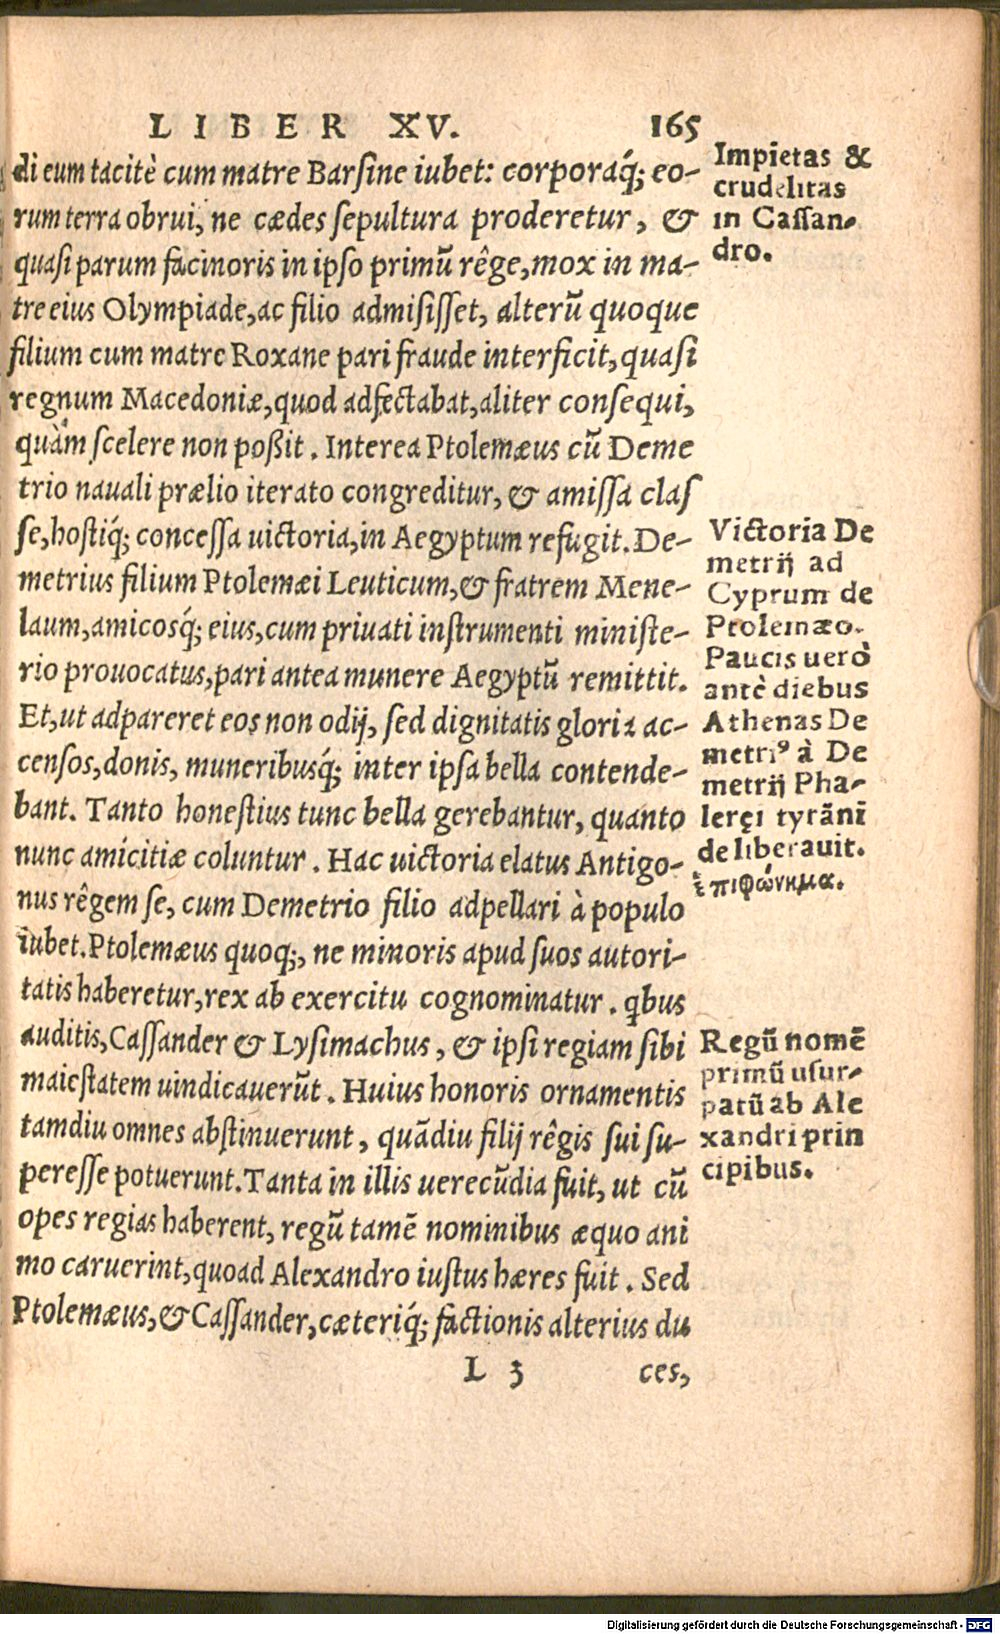 LIBER XV. 165
di eum tacitè cum matre Barsine iubet: corporaq́; eo-
rum terra obrui, ne cædes sepultura proderetur, &
quasi parum facinoris in ipso primũ rêge, mox in ma-
tre eius Olympiade, ac filio admisisset, alterũ quoque
filium cum matre Roxane pari fraude interficit, quasi
regnum Macedoniæ, quod adfectabat, aliter consequi,
quàm scelere non poßit. Interea Ptolemæus cũ Deme
trio nauali prælio iterato congreditur, & amissa clas
se, hostiq́; concessa uictoria, in Aegyptum refugit. De-
metrius filium Ptolemæi Leuticum, & fratrem Mene-
laum, amicosq́; eius, cum priuati instrumenti ministe-
rio prouocatus, pari antea munere Aegyptũ remittit.
Et, ut adpareret eos non odij, sed dignitatis gloria ac-
censos, donis, muneribusq́; inter ipsa bella contende-
bant. Tanto honestius tunc bella gerebantur, quanto
nunc amicitiæ coluntur. Hac uictoria elatus Antigo-
nus rêgem se, cum Demetrio filio adpellari à populo
iubet. Ptolemæus quoq;, ne minoris apud suos autori-
tatis haberetur, rex ab exercitu cognominatur. qbus
auditis, Cassander & Lysimachus, & ipsi regiam sibi
maiestatem uindicauerũt. Huius honoris ornamentis
tamdiu omnes abstinuerunt, quãdiu filij rêgis sui su-
peresse potuerunt. Tanta in illis uerecũdia fuit, ut cũ
opes regias haberent, regũ tamẽ nominibus æquo ani
mo caruerint, quoad Alexandro iustus hæres fuit. Sed
Ptolemæus, & Cassander, cæteriq́; factionis alterius du
L 3 ces,
Impietas &
crudelitas
in Cassan-
dro.
Victoria De
metrij ad
Cyprum de
Ptolemæo.
Paucis uerò
antè diebus
Athenas De
metriꝰ à De
metrij Pha-
lerei tyrãni
de liberauit.
ἐπιφώνημα.
Regũ nomẽ
primũ usur-
patũ ab Ale
xandri prin
cipibus.
Digitalisierung gefördert durch die Deutsche Forschungsgemeinschaft - DFG